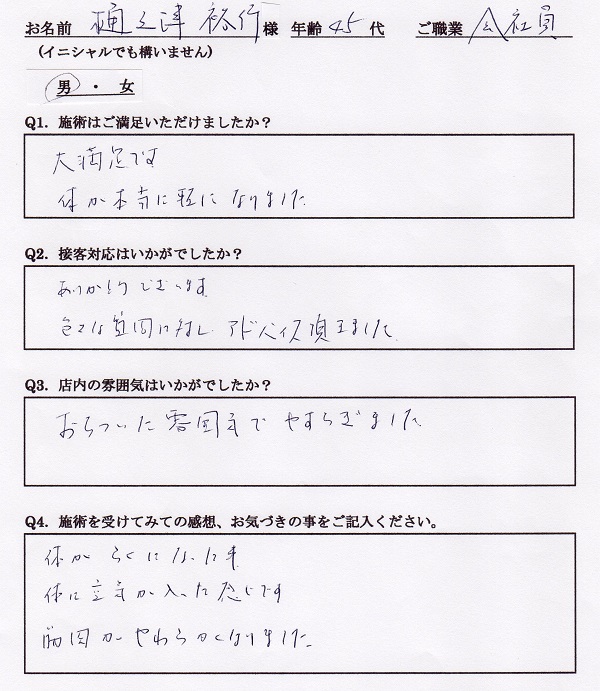 お名前 樋之津 裕行 様 年齢 45 代 ご職業 会社員
(イニシャルでも構いません)
男 ・ 女
Q1. 施術はご満足いただけましたか？
大満足です
体が本当に軽になりました
Q2. 接客対応はいかがでしたか？
ありがとうございます
色々な質問に対し アドバイス頂きました
Q3. 店内の雰囲気はいかがでしたか？
おちついた雰囲気で やすらぎました
Q4. 施術を受けてみての感想、お気づきの事をご記入ください。
体が らくになった事
体に空気が入った感じです
筋肉がやわらかくなりました